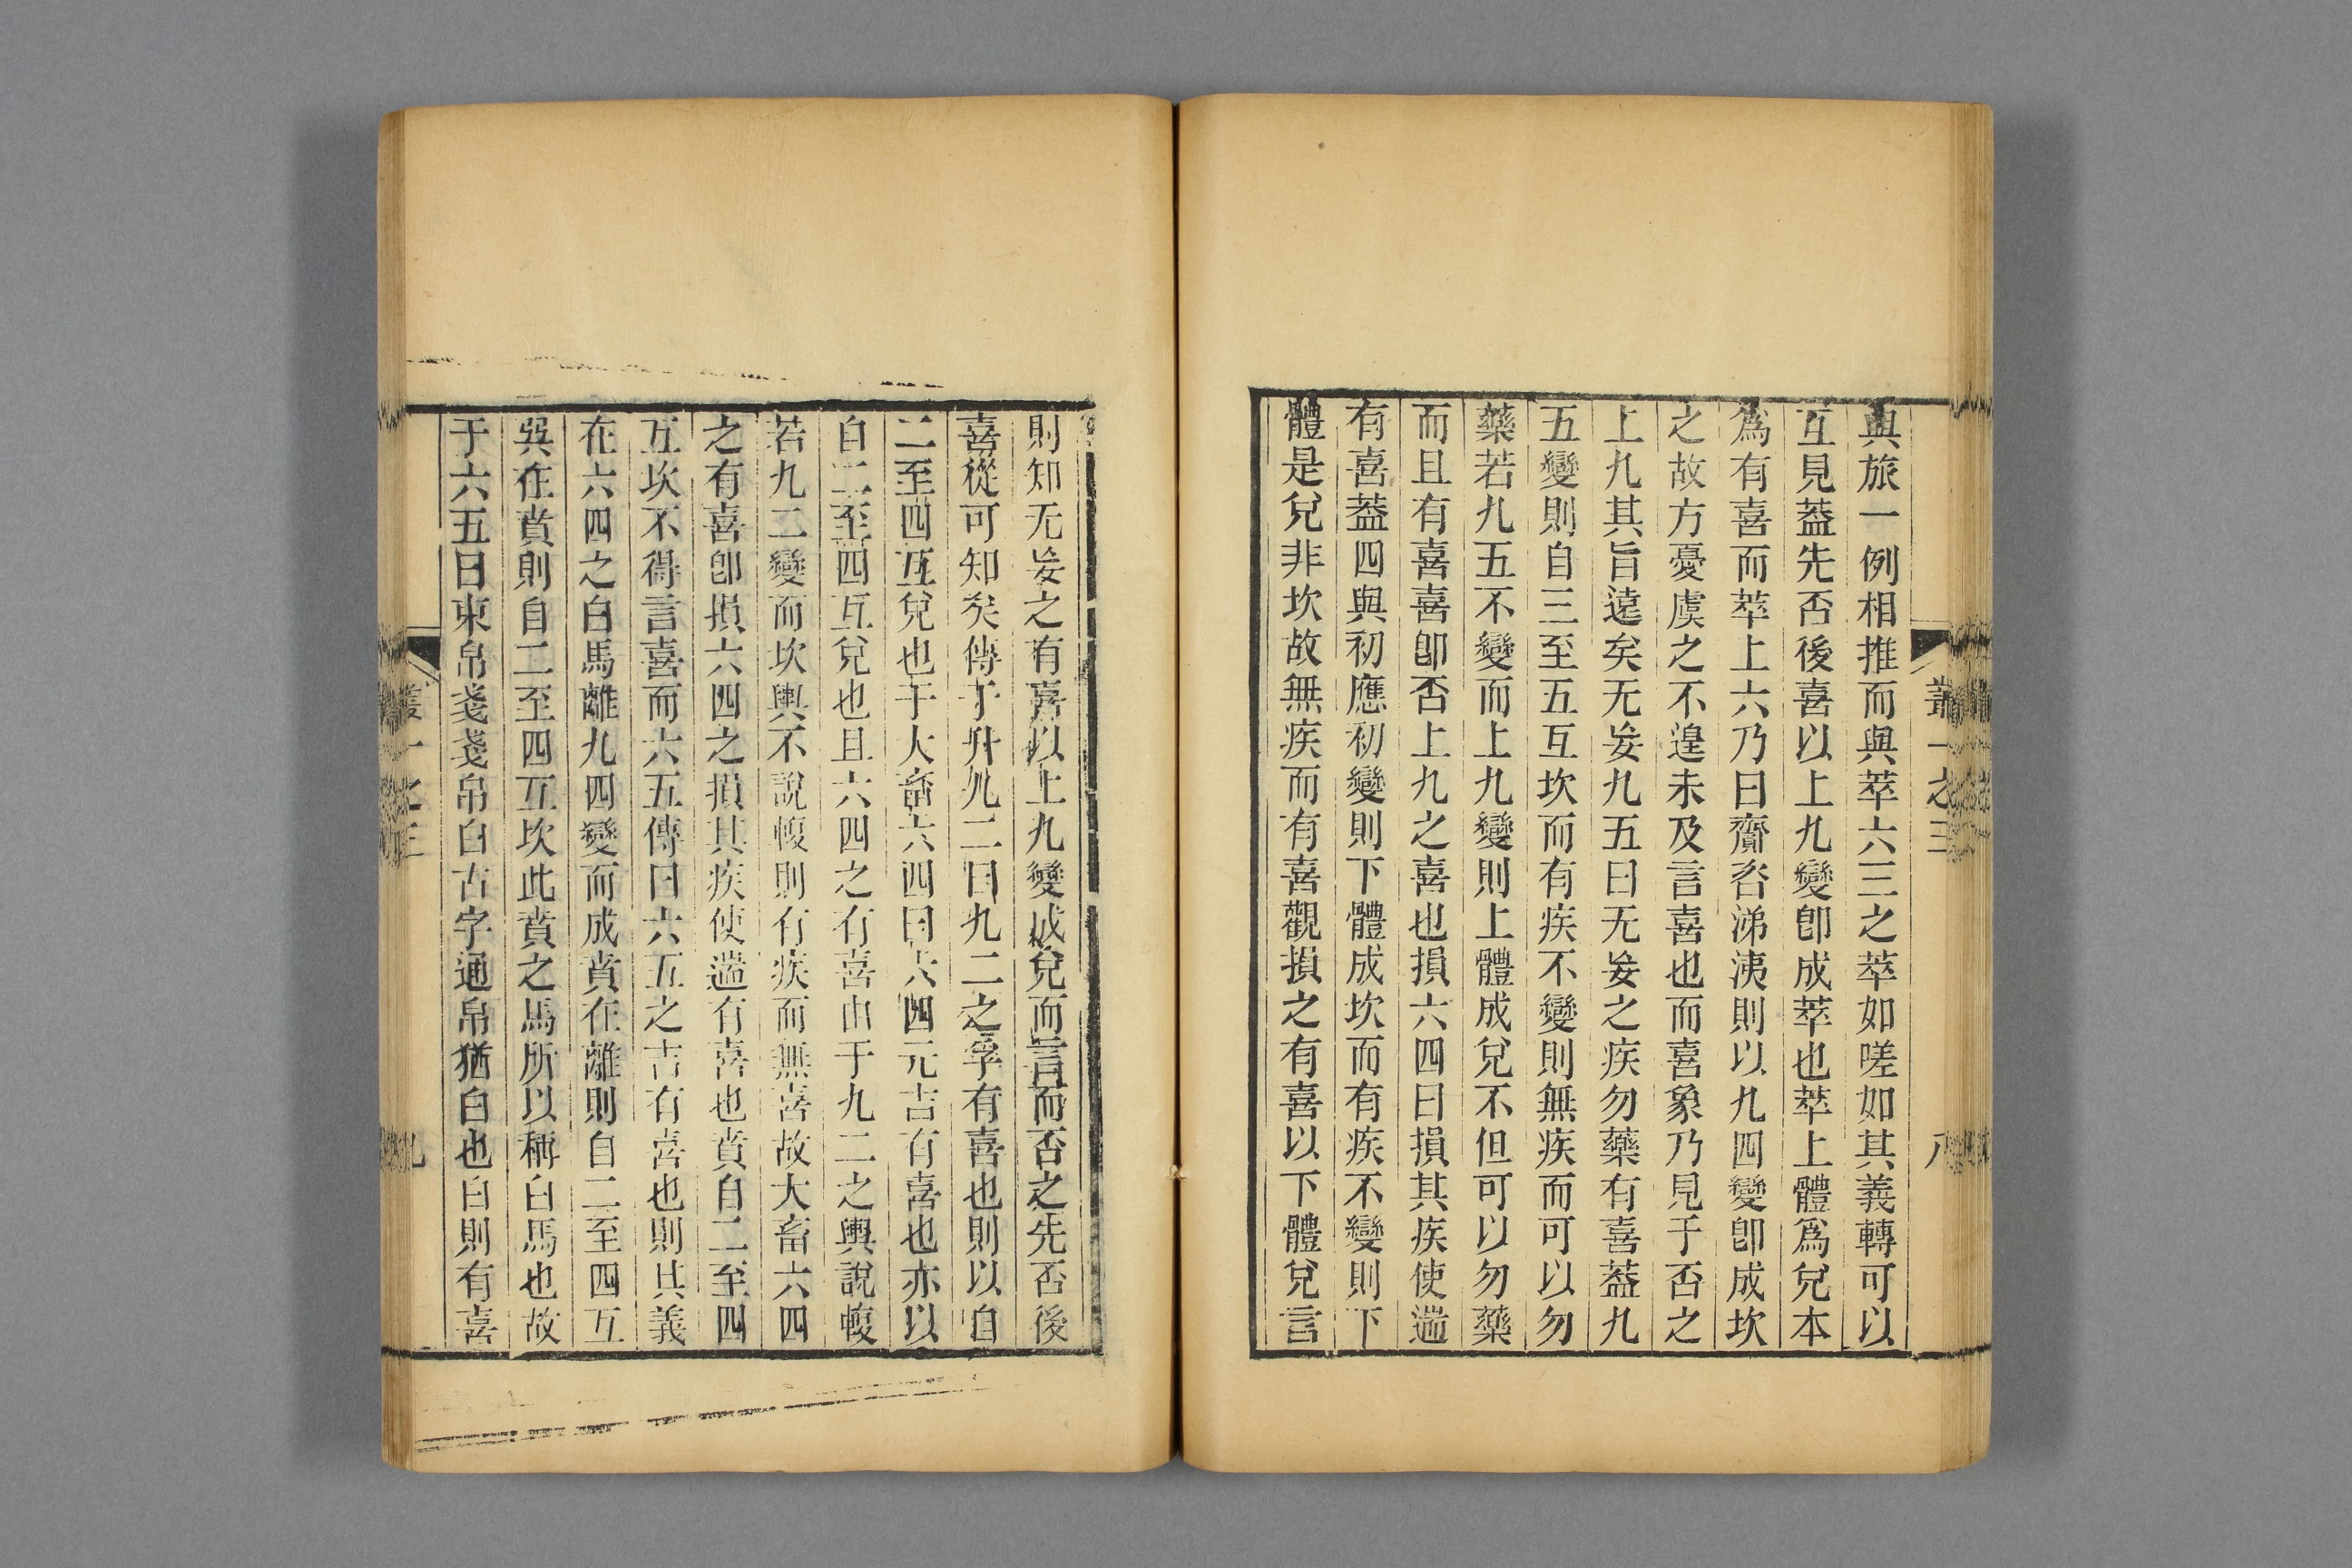 與旅一例相推而與萃六三之萃如嗟如其義轉可以
互見葢先否後喜以上九變卽成萃也萃上體爲兌本
爲有喜而萃上六乃曰齎咨涕洟則以九四變卽成坎
之故方憂虞之不遑未及言喜也而喜象乃見于否之
上九其旨遠矣无妄九五曰无妄之疾勿藥有喜葢九
五變則自三至五互坎而有疾不變則無疾而可以勿
藥若九五不變而上九變則上體成兌不但可以勿藥
而且有喜喜卽否上九之喜也損六四曰損其疾使遄
有喜葢四與初應初變則下體成坎而有疾不變則下
體是兌非坎故無疾而有喜觀損之有喜以下體兌言
叢一之三
八
則知无妄之有喜以上九變成兌而言而否之先否後
喜從可知矣傳于升九二曰九二之孚有喜也則以自
二至四互兌也于大畜六四曰六四元吉有喜也亦以
自二至四互兌也且六四之有喜由于九二之輿說輹
若九二變而坎輿不說輹則有疾而無喜故大畜六四
之有喜卽損六四之損其疾使遄有喜也賁自二至四
互坎不得言喜而六五傳曰六五之吉有喜也則其義
在六四之白馬離九四變而成賁在離則自二至四互
巽在賁則自二至四互坎此賁之馬所以稱白馬也故
于六五曰束帛戔戔帛白古字通帛猶白也白則有喜
叢一之三
九